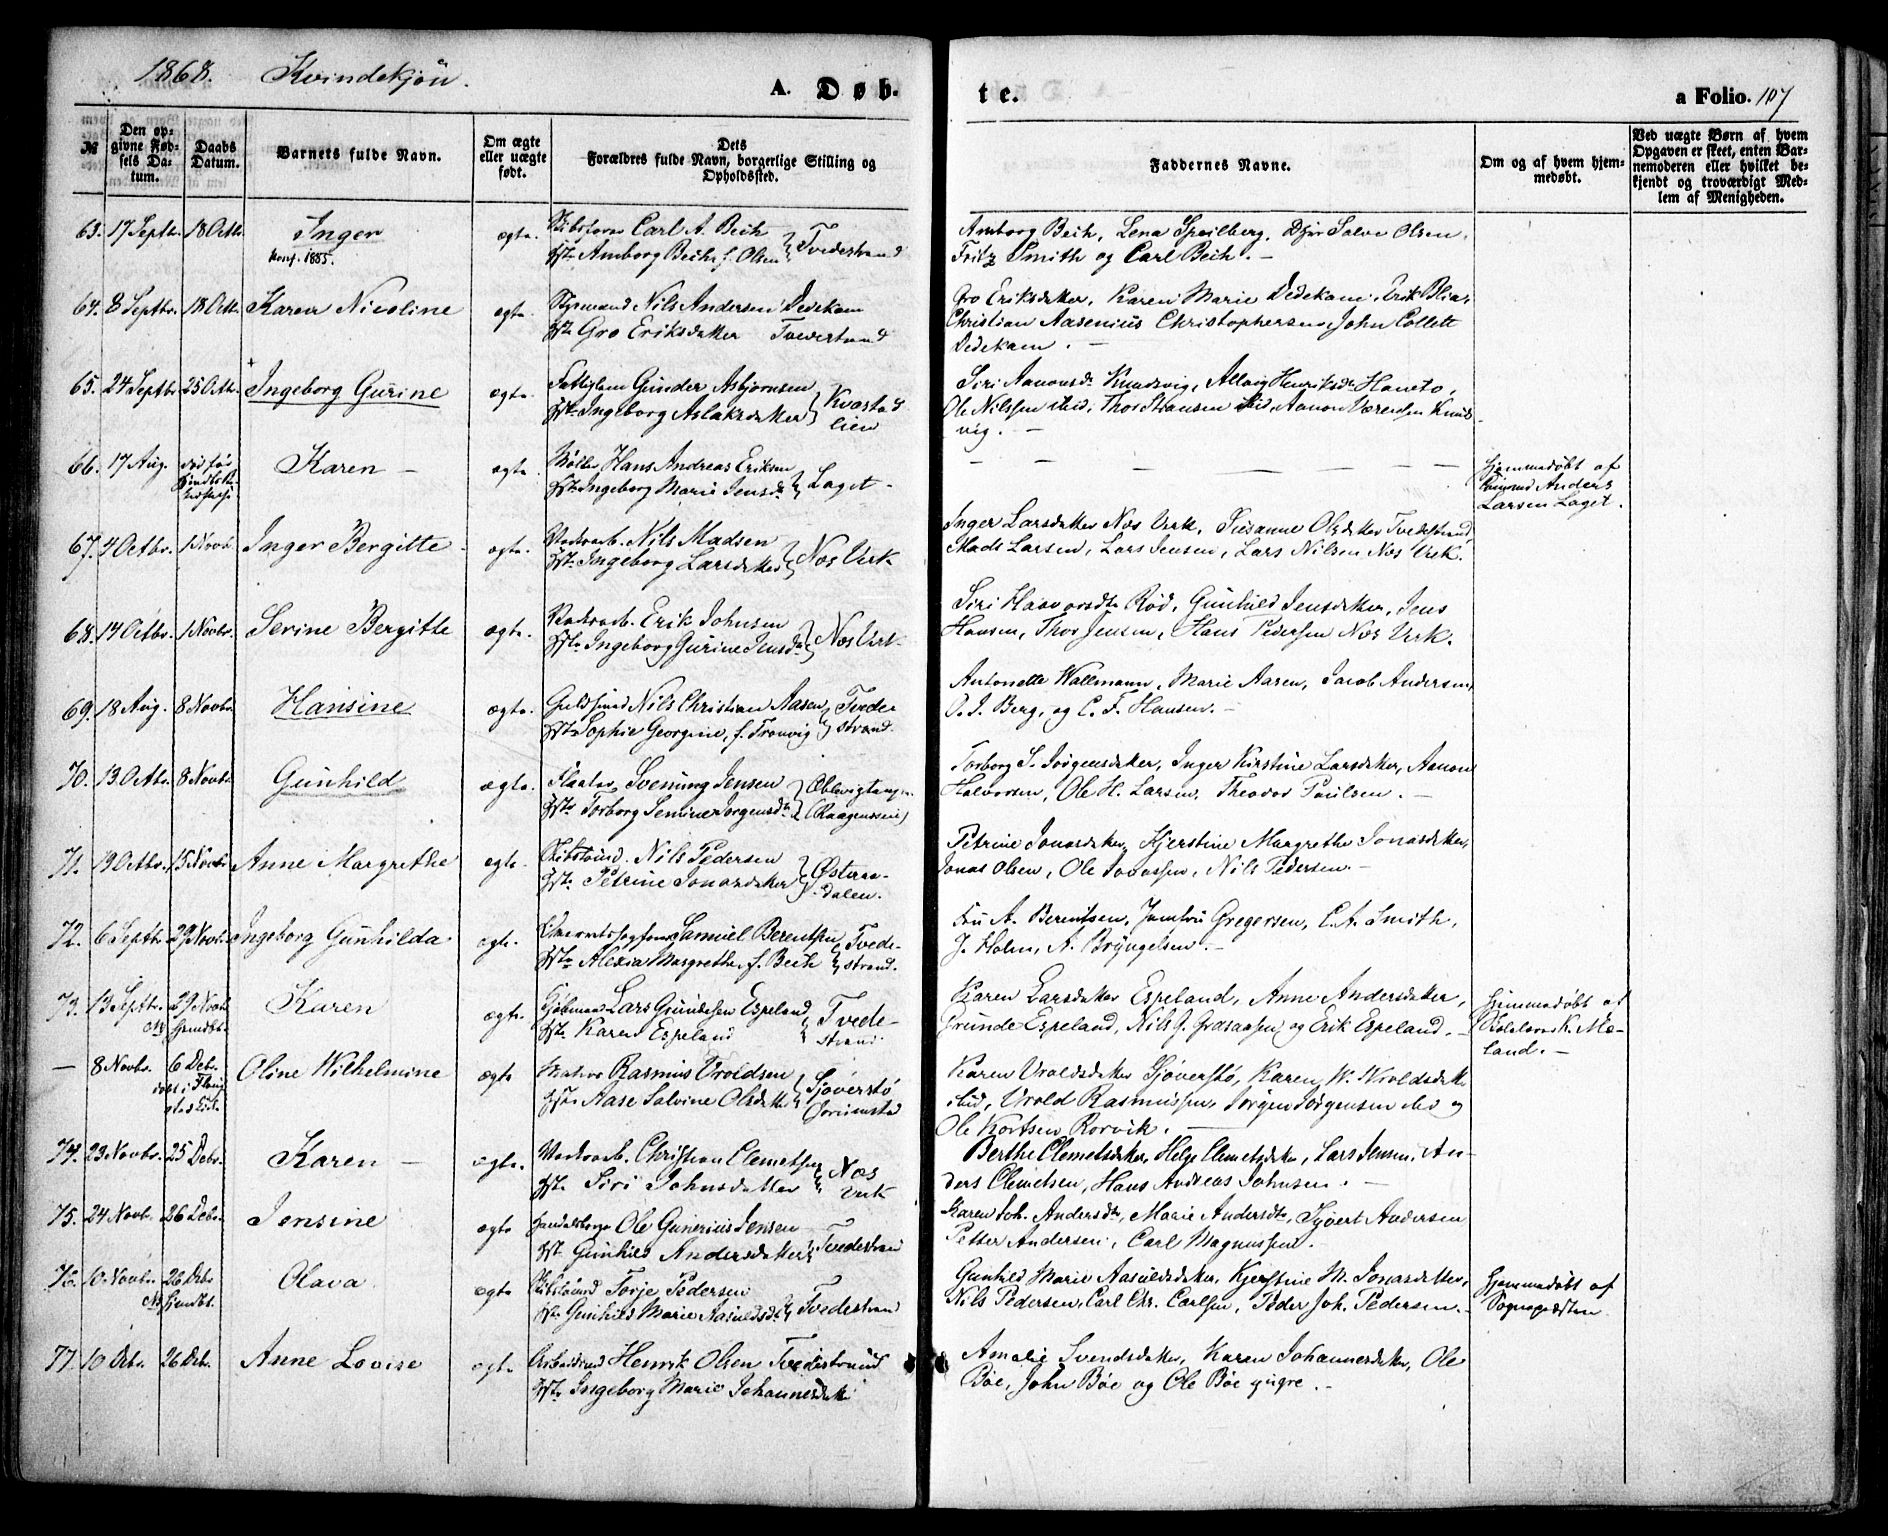 1868. Kvindekjön.
A. Døb.
te.
a Folio. 107
№
Den opgivne Fødsels Datum.
Daabs Datum.
Barnets fulde Navn.
Om ægte eller uægte født.
Dets Forældres fulde Navn, borgerlige Stilling og Opholdssted.
Faddernes Navne.
Om og af hvem hjemmedøbt.
Ved uægte Børn af hvem Opgaven er skeet, enten Barnemoderen eller hvilket bekjendt og troværdigt Medlem af Menigheden.
63. 17 Septbr. 18 Octbr. Inger ægte. Carl A. Bech
Konf. 1885. Hst. Amborg Bech f. Olsen } Tvedestrand
Amborg Bech, Lena Speilberg, Salve Olsen,
Fritz Smith og Carl Bech. —
64. 8 Septbr. 18 Octbr. Karen Nicoline ægte. Styrmand Nils Andersen Dedekam
Hst. Gro Eriksdatter Tvedestrand
Gro Eriksdatter, Karen Marie Dedekam, Erik
Christian Aasenius Christophersen, John Collett
Dedekam. —
65. 24 Septbr. 25 Octbr. Ingeborg Gurine ægte. Gunder Asbjornsen
Hst. Ingeborg Aslaksdatter } Kvastad
lien
Siri Aanonsdt. Knudsvig, Henriksdt. Haneto,
Ole Nilssen ibid, Thor Hansen ibid Aanon Knuds
vig. —
66. 17 Aug. Karen — ægte. Hans Andreas Eriksen
Hst. Ingeborg Marie Jensdt. } Laget.
— — — — —
Hjemmedøbt af
Anders
Larsen Laget.
67. 4 Octbr. 1 Novbr. Inger Bergitte ægte. Værksarb. Nils Madsen
Hst. Ingeborg Larsdatter } Næs Verk
Inger Larsdatter Næs Verk, Susanne Olsdatter Tvedestrand,
Mads Larsen, Lars Jensen, Lars Nilsen Næs Verk.
68. 14 Octbr. 1 Novbr. Serine Bergitte ægte. Værksarb. Erik Johnsen
Hst. Ingeborg Gurine Jensdt. } Næs Verk
Siri Haavorsdt. Rød, Gunhild Jensdatter, Jens
Hansen, Thor Jensen, Hans Pedersen Næs Verk.
69. 18 Aug. 8 Novbr. Hansine ægte. Guldsmed Nils Christian Aasen
Hst. Sophie Georgine, f. Tronvig } Tvede
strand.
Antonette Wallmann, Marie Aaren, Jacob Andersen,
O. J. Berg, og C. F. Hansen. —
70. 13 Octbr. 8 Novbr. Gunhild ægte. Svenung Jensen
Hst. Torborg Semine Jorgensdt.
Torborg S. Jörgensdatter, Inger Kirstine Larsdatter, Aanon
Halvorsen, Ole H. Larsen, Theodor Paulsen. —
71. 19 Octbr. 15 Novbr. Anne Margrethe ægte. Nils Pedersen
Hst. Petrine Jonasdatter } Østeraa-
dalen.
Petrine Jonasdatter, Kjerstine Margrethe Jonasdatter,
Jonas Olsen, Ole Jonassen, Nils Pedersen. —
72. 6 Septbr. 29 Novbr. Ingeborg Gunhilda ægte. Samuel Berentsen
Hst. Alexia Margrethe, f. Bech } Tvede-
strand.
Fru A. Berentsen, Jomfru Gregersen, C. A. Smith,
J. Holm, A. Bryngelsen. —
73. 13 Septbr. 29 Novbr. Karen ægte. Kjøbmand Lars Grundesen Espeland
Hst. Karen Espeland } Tvede-
strand
Karen Larsdatter Espeland, Anne Andersdatter,
Grunde Espeland, Nils G. og Erik Espeland. —
Hjemmedøbt af
K. Mø-
land. —
— 8 Novbr. 6 Debr. Oline Wilhelmine ægte Rasmus Vroldsen
Hst. Aase Salvine Olsdatter } Sjøverstø
Grimstad
Karen Vroldsdatter Sjøverstø, Karen W. Wroldsdatter
ibid, Vrold Rasmussen, Jörgen Jörgensen ibid og
Ole Kortsen Rorvik. —
74. 23 Novbr. 25 Debr. Karen — ægte. Værksarb. Christian Clemetsen
Hst. Siri Johnsdatter } Næs
Verk
Berthe Clemetsdatter, Helge Clemetsdatter, Lars Jensen, An-
ders Clemetsen, Hans Andreas Johnsen. —
75. 24 Novb. 26 Debr. Jensine ægte Ole Gunerius Jensen
Hst. Gunhild Andersdatter } Tvedestrand
Karen Joh. Andersdt., Marie Andersdt., Sjvert Andersen
Petter Andersen, Carl Magnussen. —
76. 10 Novbr. 26 Debr. Olava ægte Torje Pedersen
Hst. Gunhild Marie Aasuldsdt. } Tvedestrand
Gunhild Marie Aasuldsdatter, Kjerstine M. Jonasdatter,
Nils Pedersen, Carl Chr. Carlsen, Peder Joh. Pedersen. —
Hjemmedøbt af
Sognepresten
77. 10 Debr. 26 Debr. Anne Lovise ægte Arbeidsmd Henrik Olsen Tvedestrand
Hst. Ingeborg Marie Johannesdatter
Amalie Svendsdatter, Karen Johannesdatter, Ole
Bøe, John Bøe og Ole Bøe yngre. —